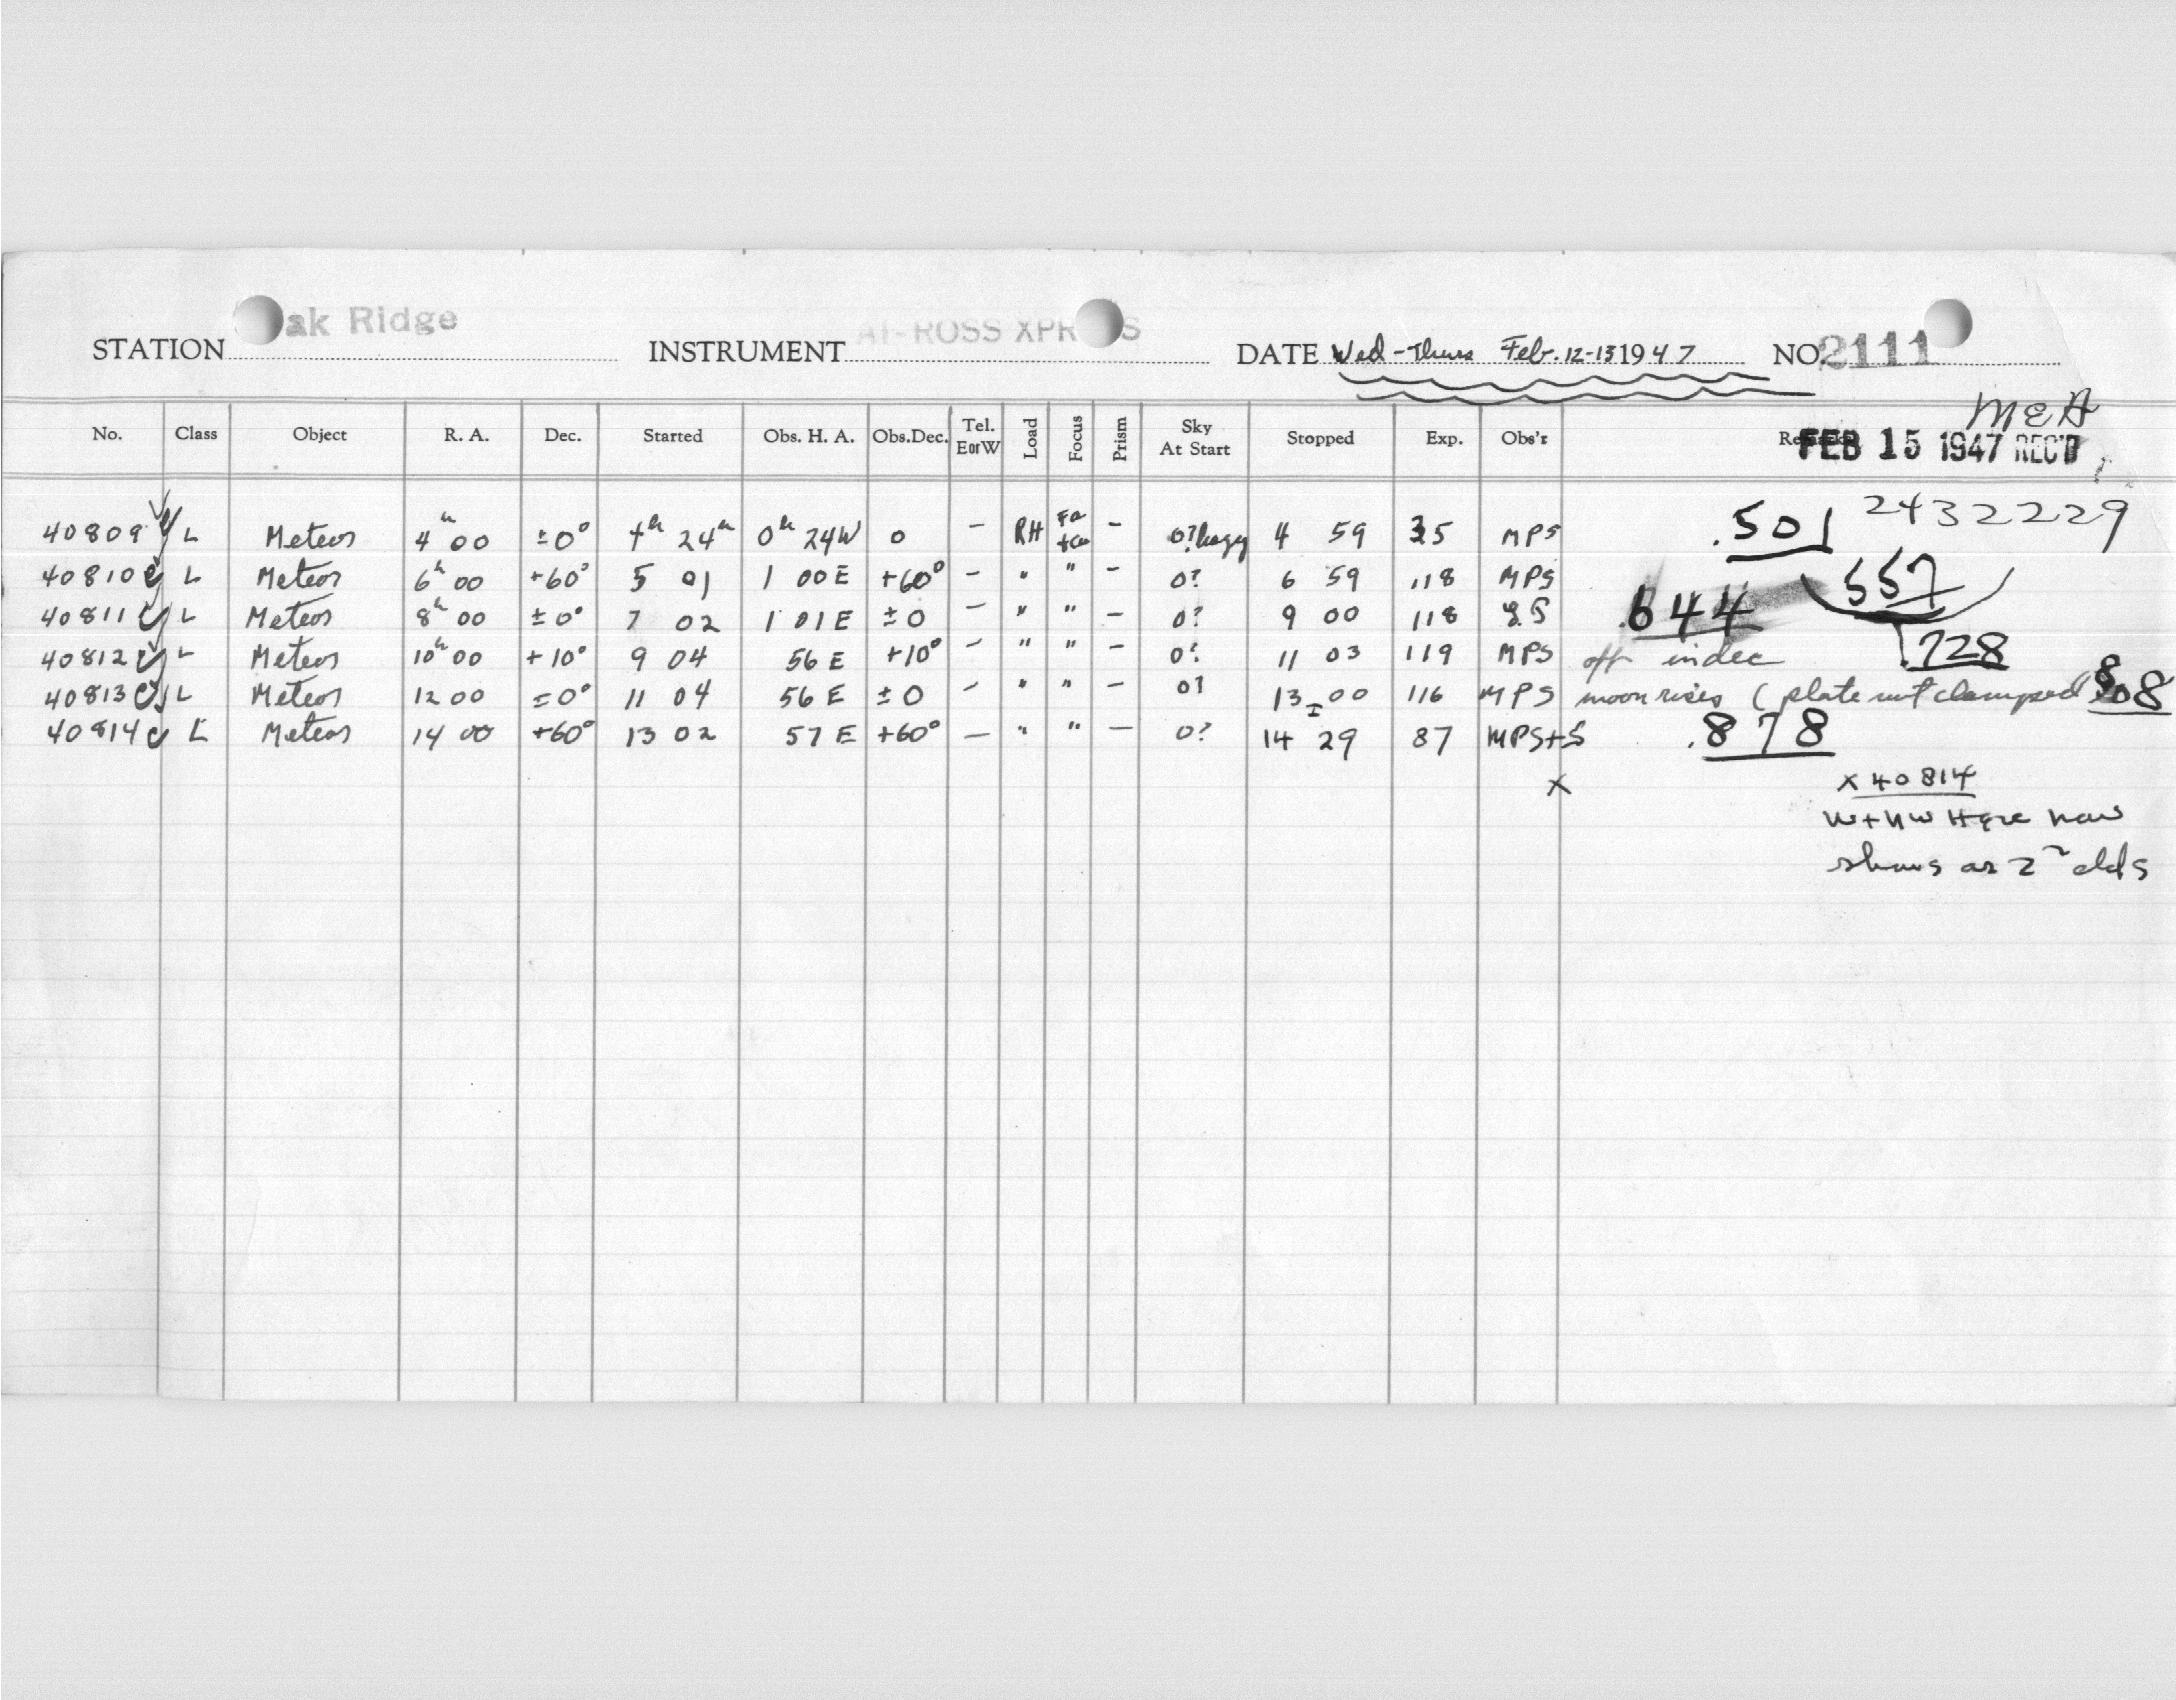 STATION ak Ridge INSTRUMENT AI-ROSS XPR S DATE Wed-Thurs Feb. 12-13 1947 NO. 2111
MEA
No. Class Object R. A. Dec. Started Obs. H. A. Obs.Dec. Tel. EorW Load Focus Prism Sky At Start Stopped Exp. Obs'r
FEB 15 1947 REC'D
40809 L Meteors 4h 00 ±0° 4h 24m 0h 24W 0 – RH – 0? hazy 4 59 35 MPS .501 2432229
40810 L Meteors 6h 00 +60° 5 01 1 00 E +60° – " " – 0? 6 59 118 MPS .557
40811 L Meteors 8h 00 ±0° 7 02 1 01 E ±0 – " " – 0? 9 00 118 .644
40812 L Meteors 10h 00 +10° 9 04 56 E +10° – " " – 0? 11 03 119 MPS off in dec .728
40813 L Meteors 12 00 ±0° 11 04 56 E ±0 – " " – 0? 13 00 116 MPS moon rises (plate not clamped" .808
40814 L Meteors 14 00 +60° 13 02 57 E +60° – " " – 0? 14 29 87 MPS+S .878
x
x 40814
W+NW Haze now
shows as 2 clds